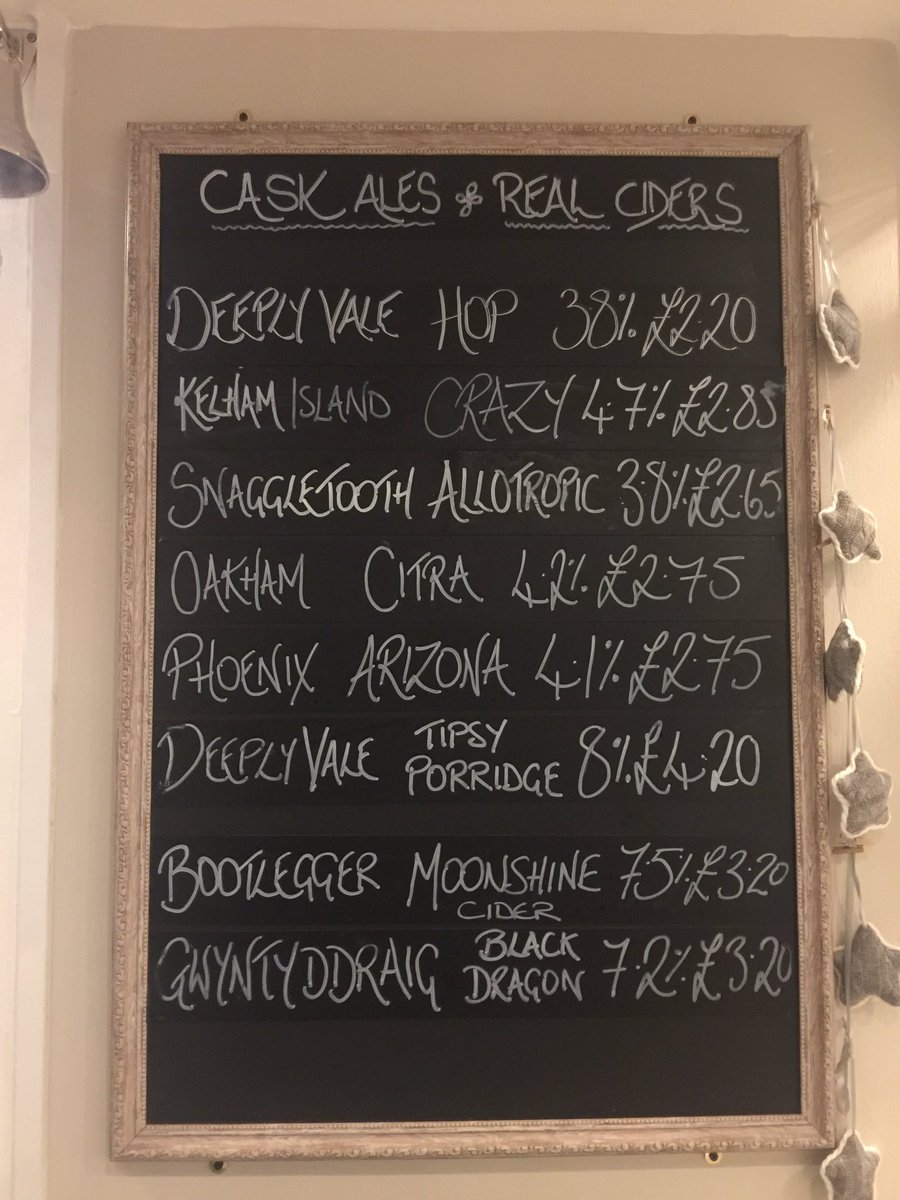 CASK ALES & REAL CIDERS
DEEPLY VALE HOP 3.8% £2.20
KELHAM ISLAND CRAZY 4.7% £2.85
SNAGGLETOOTH ALLOTROPIC 3.8% £2.65
OAKHAM CITRA 4.2% £2.75
PHOENIX ARIZONA 4.1% £2.75
DEEPLY VALE TIPSY PORRIDGE 8% £4.20
BOOTLEGGER MOONSHINE CIDER 7.5% £3.20
GWYNTYDDRAIG BLACK DRAGON 7.2% £3.20